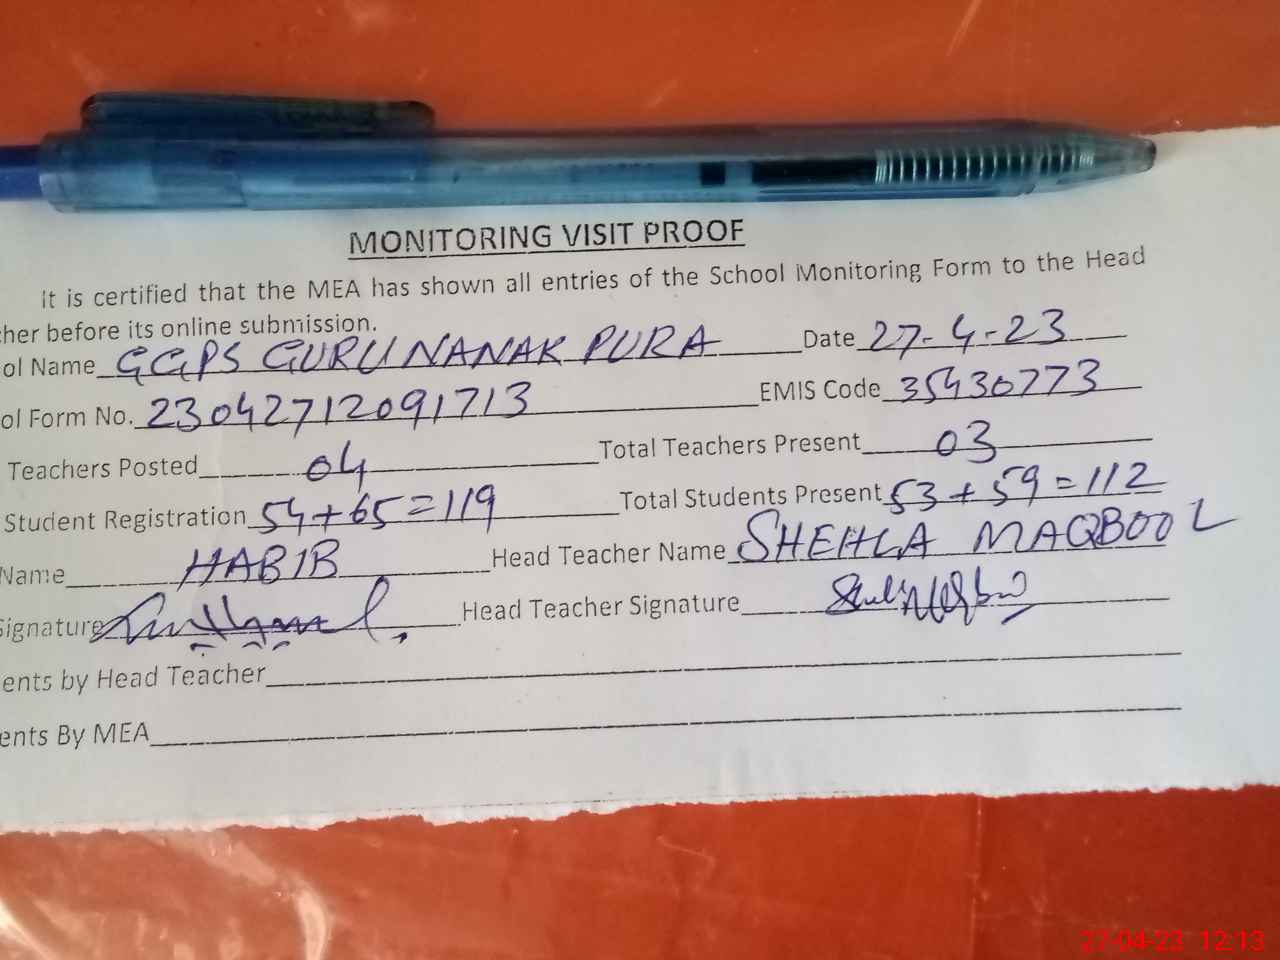 MONITORING VISIT PROOF
It is certified that the MEA has shown all entries of the School Monitoring Form to the Head
cher before its online submission.
ol Name GGPS GURU NANAK PURA Date 27-4-23
ol Form No. 23042712091713 EMIS Code 35430773
Teachers Posted 04 Total Teachers Present 03
Student Registration 54+65=119 Total Students Present 53+59=112
Name HABIB Head Teacher Name SHEHLA MAQBOOL
Signature Head Teacher Signature
ents by Head Teacher
ents By MEA
27-04-23 12:13